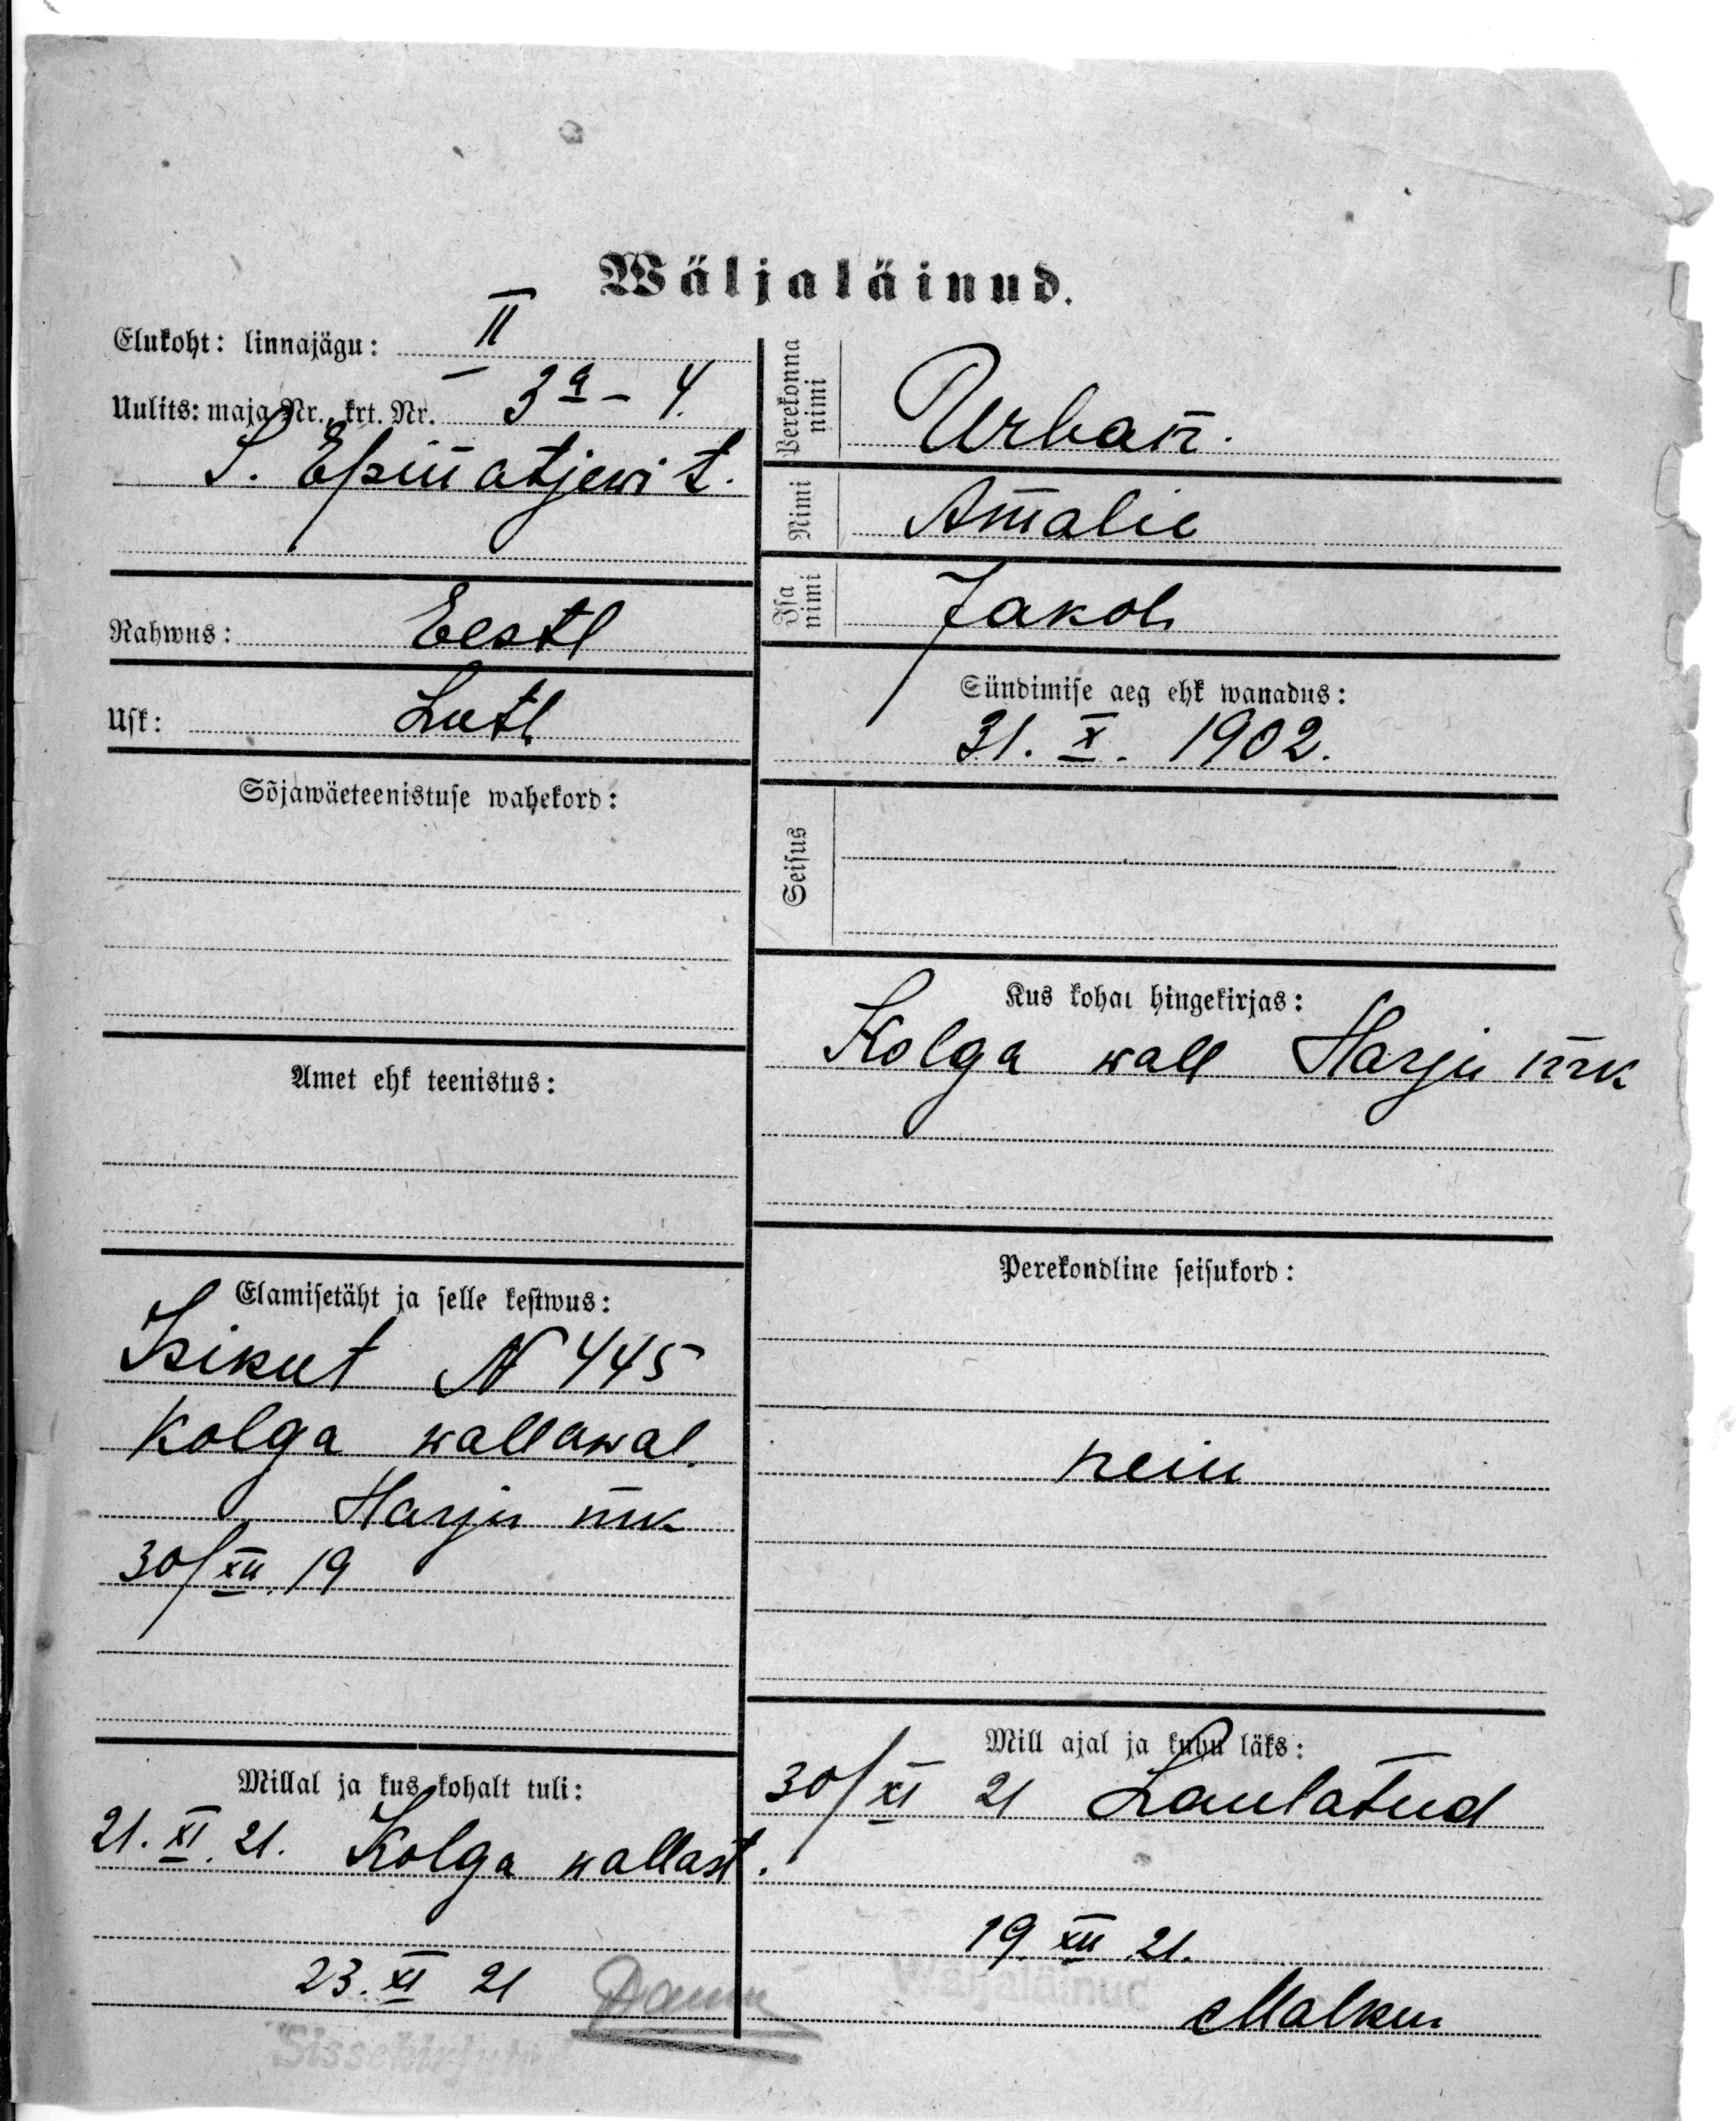 Wäljaläinud.
Elukoht: linnajägu: II
Uulits: maja Nr., krt. Nr. 3a – 4.
S. t.
Rahwus: Eestl
Usk: Luth
Sõjawäeteenistuse wahekord:
Amet ehk teenistus:
Elamisetäht ja selle kestwus:
Isikut N 445
Kolga wallawal.
Harju mk
30/XII. 19
Millal ja kus kohalt tuli:
21. XI. 21. Kolga wallast.
23. XI 21
Sissekirjutud
Perekonna nimi Urban.
Nimi Amalie
Isa nimi Jakob
Sündimise aeg ehk wanadus:
31. X. 1902.
Seisus
Kus kohal hingekirjas:
Kolga wall Harju mk
Perekondline seisukord:
neiu
Mill ajal ja kuhu läks:
30/XI 21 Laulatud
19. XII 21.
Wäljaläinud